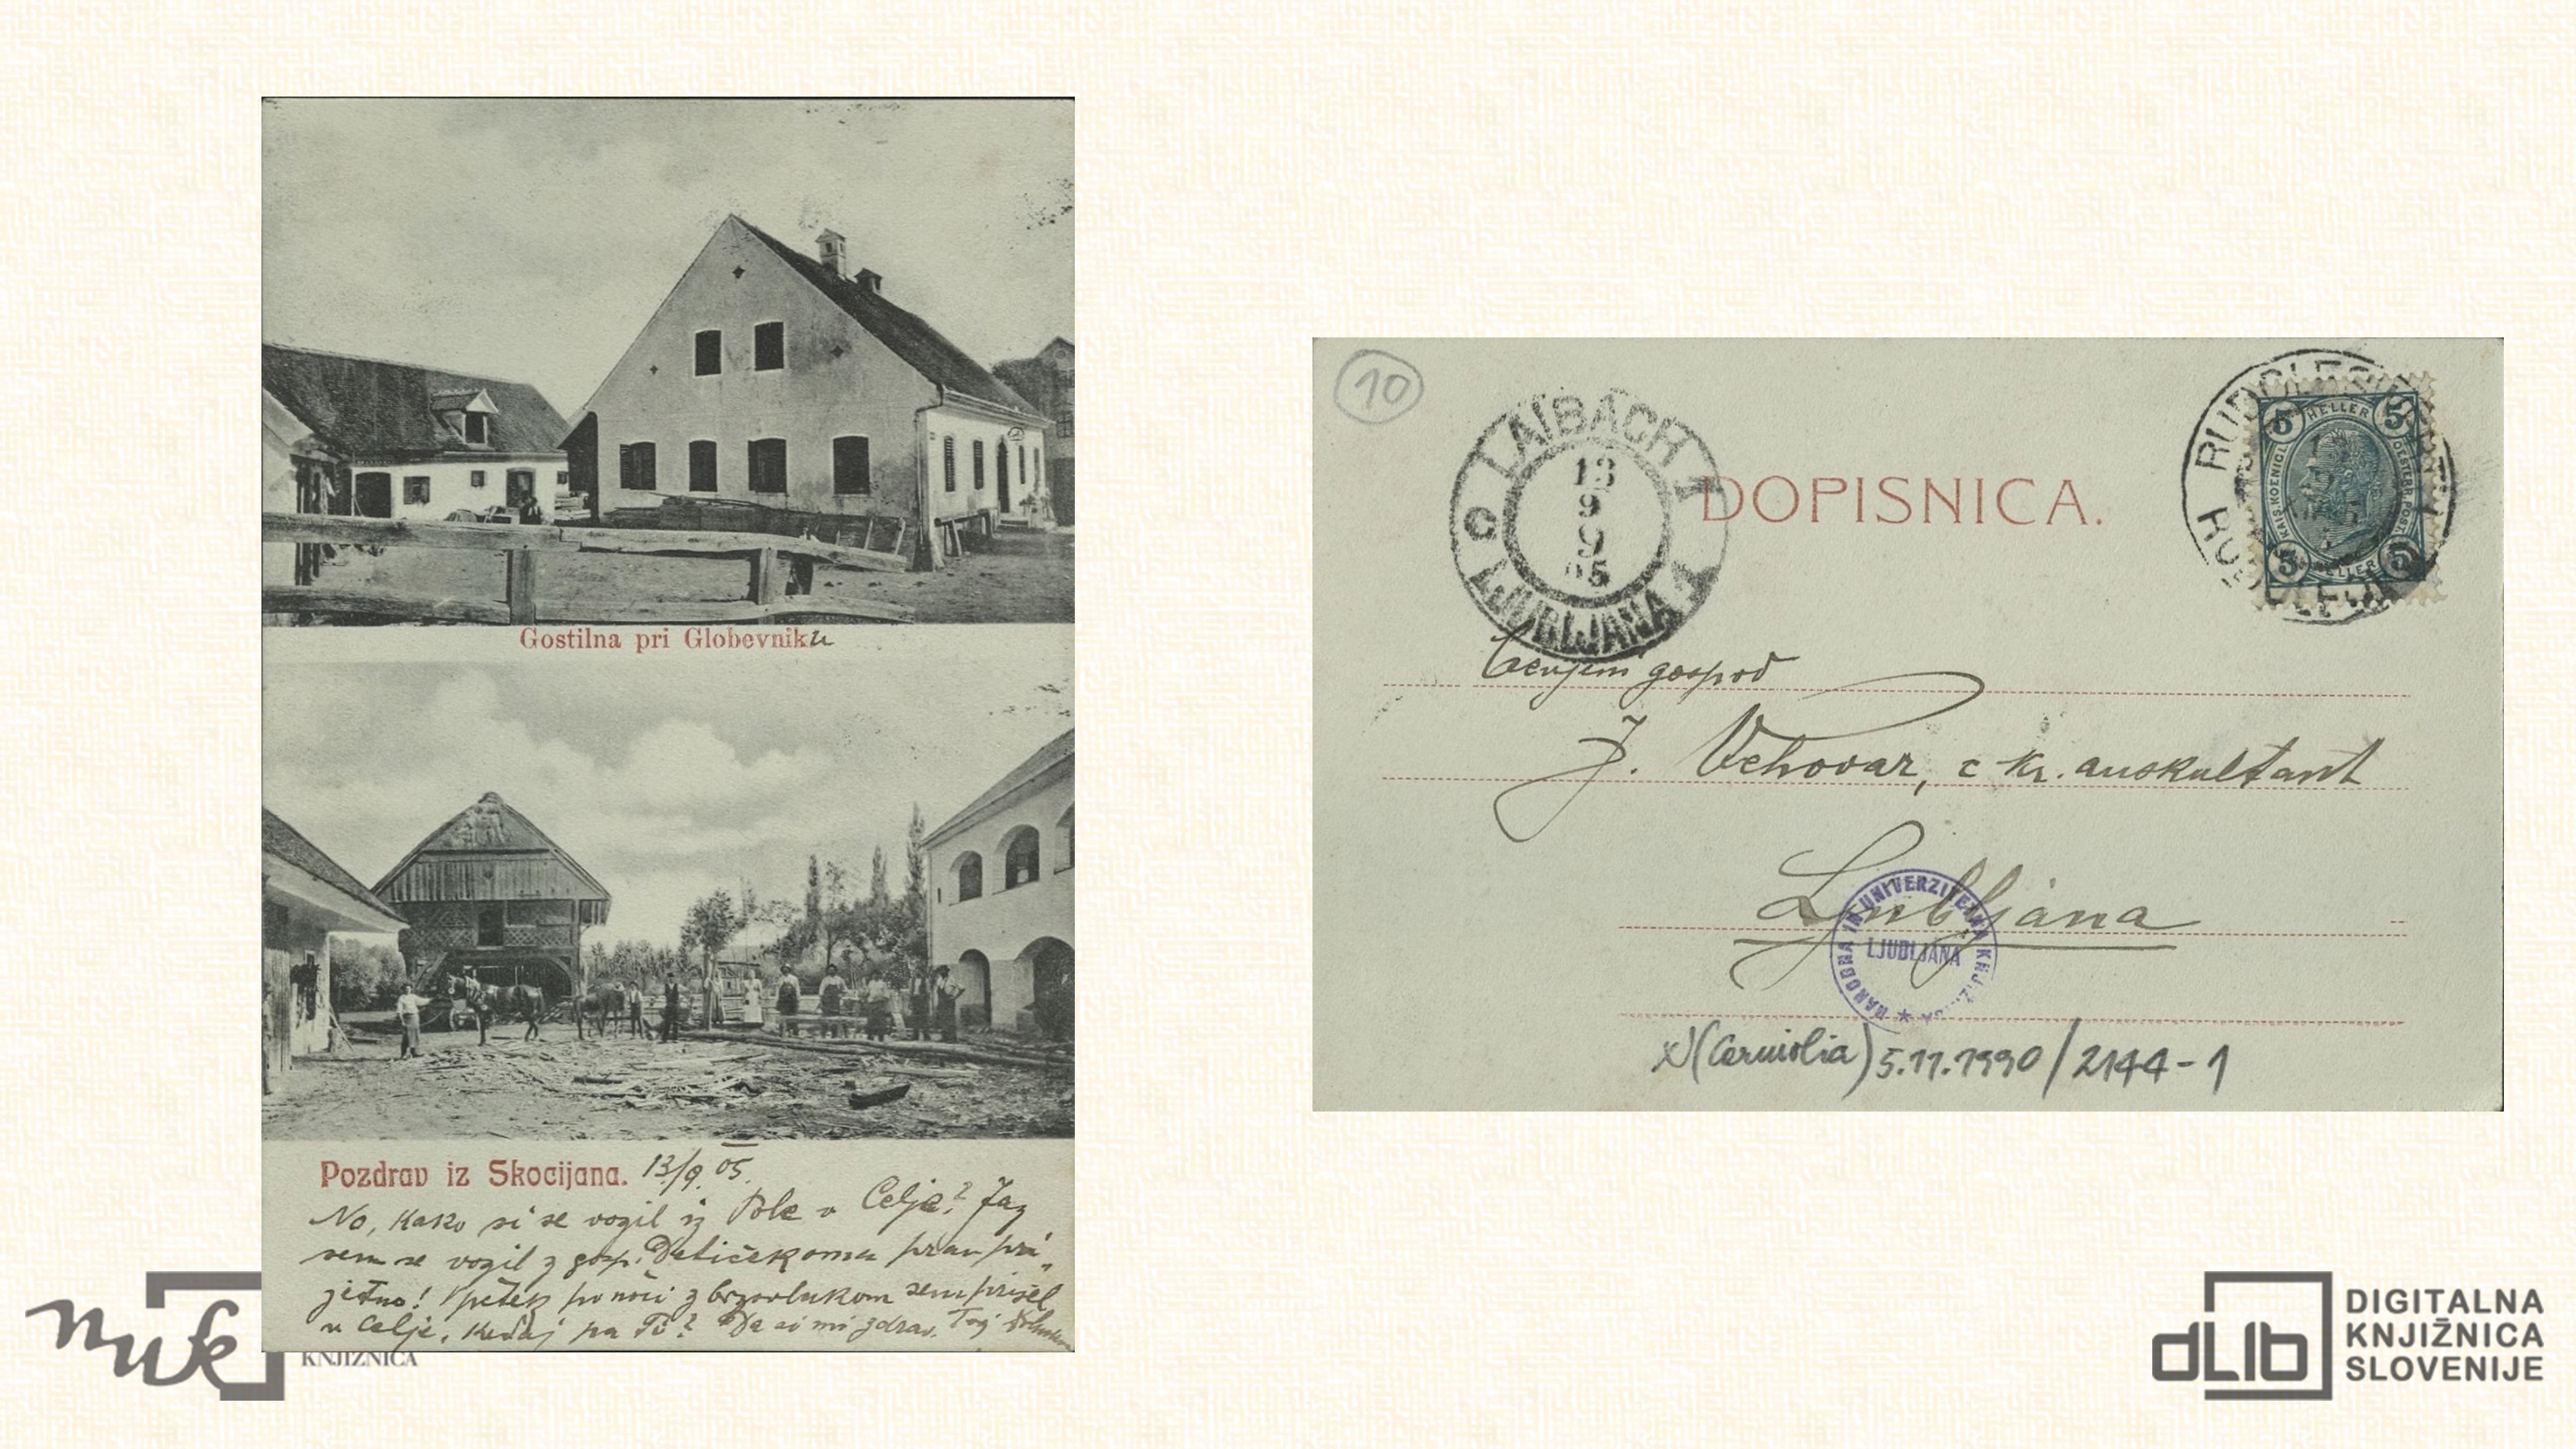 Gostilna pri Globevniku
Pozdrav iz Skocijana. 13/9. 05.
No, kako si se vozil iz Pole v Celje? Jaz
sem se vozil z gosp. Detičekoma prav pri„
jetno! V petek po noči z brzovlakom sem prišel
v Celje, kedaj pa Ti? Da si mi zdrav. Tvoj
10
LAIBACH 1
13
9
9
05
LJUBLJANA 1
DOPISNICA.
RUDOLFS
5 HELLER 5
KAIS. KOENIGL. OESTERR. POST
5 HELLER 5
Cenjeni gospod
J. Vehovar, c kr. auskultant
Ljubljana
NARODNA IN UNIVERZITETNA KNJIŽ
LJUBLJANA
N(Carniolia) 5.11.1990/2144-1
nuk
KNJIŽNICA
dLib
DIGITALNA
KNJIŽNICA
SLOVENIJE